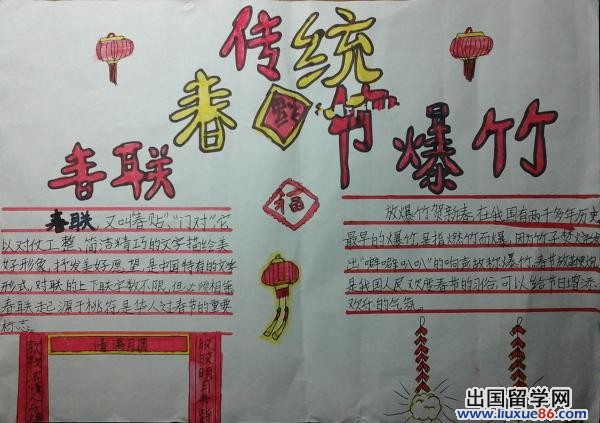 传统
春 福 节
春联
爆竹
福
春联，又叫"春贴""门对"它
以对仗工整、简洁精巧的文字描绘美
好形象，抒发美好愿望，是中国特有的文学
形式，对联的上下联字数不限，但必须相等
春联起源于桃符是华人过春节的重要
标志。
放爆竹贺新春，在我国有两千多年历史
最早的爆竹，是指燃竹而爆，因
出"噼噼叭叭"的响声故称爆竹。春节放
是我国人民欢度春节的习俗，可以给节日增添
欢乐的气氛。
情满月圆
皎皎明月
出国留学网
www.liuxue86.com